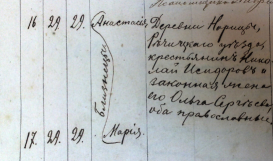 16 29. 29. Анастасія,
Деревни
Рѣчицкаго уѣзда,
крестьянинъ Нико-
лай Исидоровъ и
законная жена
его Ольга Сергѣева
оба православные
Близнецы
17. 29. 29. Марія.